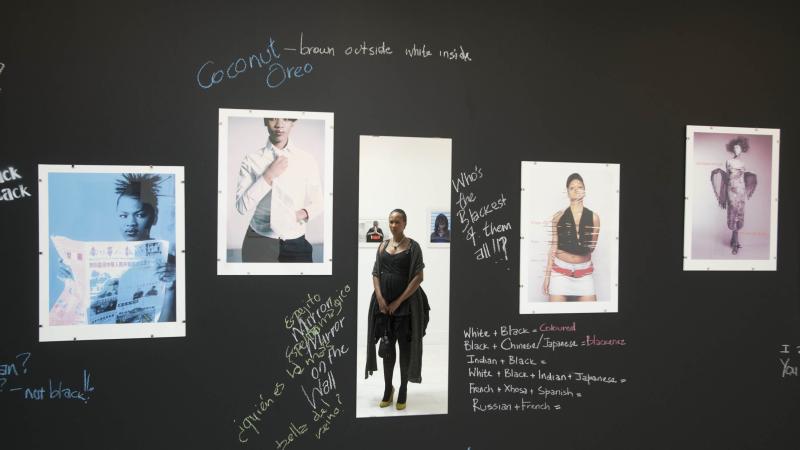 Coconut – brown outside white inside
Oreo
ck
ack
Who's
the
Blackest
of them
all!!?
Espejito
Espejito mágico
Mirror
Mirror
on the
Wall
¿quién es la más
bella del
reino?
White + Black = Coloured
Black + Chinese/Japanese = Blackenez
Indian + Black =
White + Black + Indian + Japanese =
French + Xhosa + Spanish =
Russian + French =
an?
? – not black!!
I
You